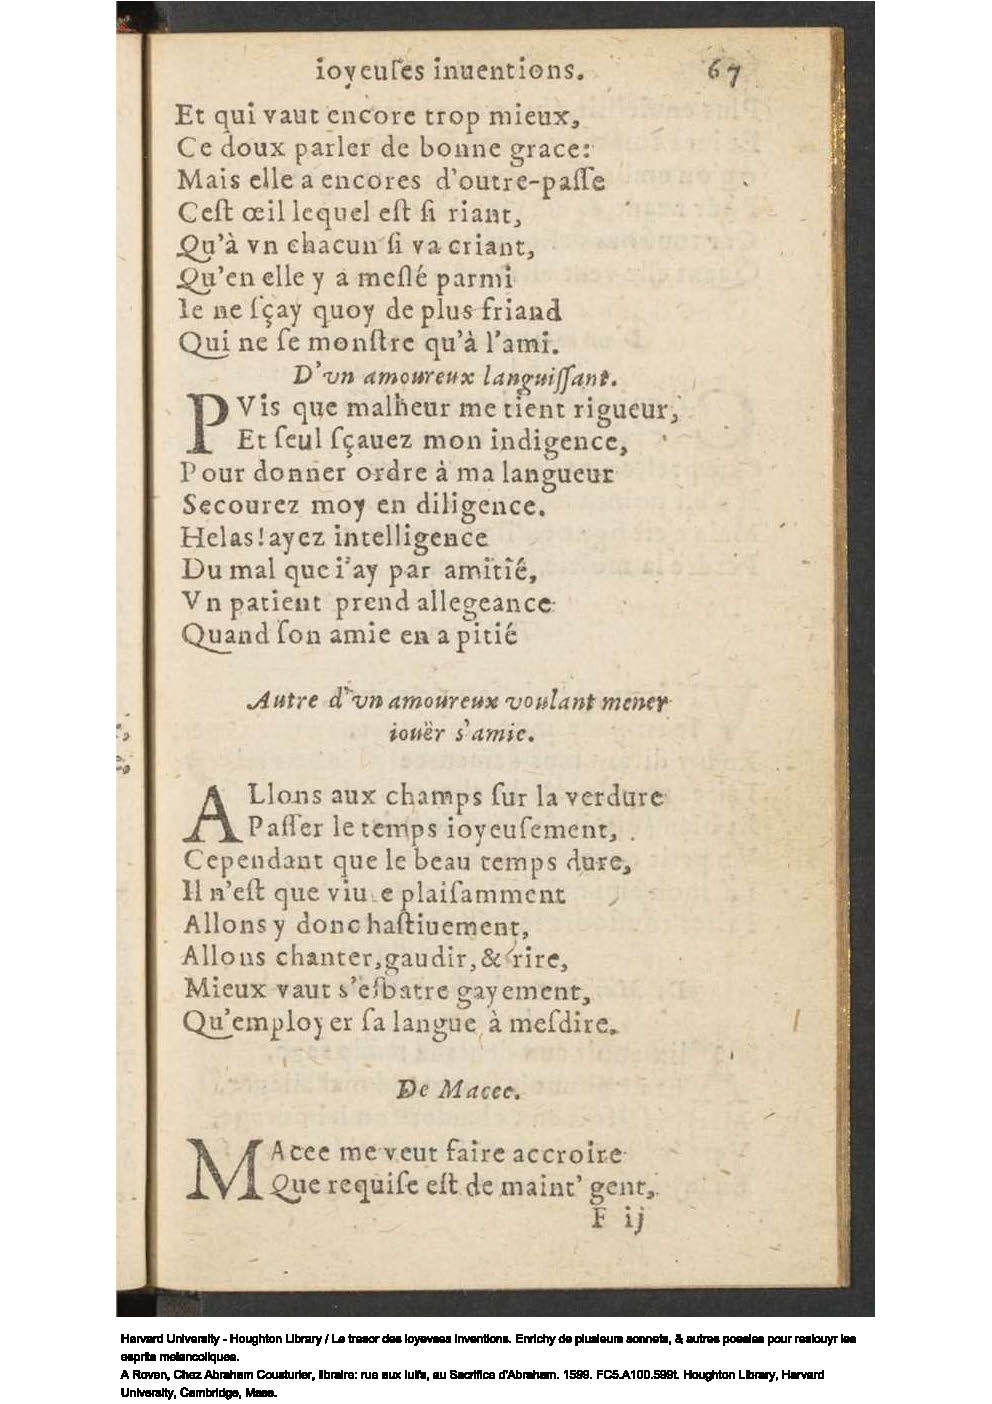 ioyeuſes inuentions. 67
Et qui vaut encore trop mieux,
Ce doux parler de bonne grace:
Mais elle a encores d'outre-paſſe
Ceſt œil lequel eſt ſi riant,
Qu'à vn chacun ſi va criant,
Qu'en elle y a meſlé parmi
Ie ne ſçay quoy de plus friand
Qui ne ſe monſtre qu'à l'ami.
D'vn amoureux languiſſant.
PVis que malheur me tient rigueur,
Et ſeul ſçauez mon indigence,
Pour donner ordre à ma langueur
Secourez moy en diligence.
Helas! ayez intelligence
Du mal que i'ay par amitié,
Vn patient prend allegeance
Quand ſon amie en a pitié
Autre d'vn amoureux voulant mener
iouër s'amie.
ALlons aux champs ſur la verdure
Paſſer le temps ioyeuſement,
Cependant que le beau temps dure,
Il n'eſt que viure plaiſamment
Allons y donc haſtiuement,
Allons chanter, gaudir, & rire,
Mieux vaut s'eſbatre gayement,
Qu'employer ſa langue à meſdire.
De Macee.
MAcee me veut faire accroire
Que requiſe eſt de maint' gent,
F ij
Harvard University - Houghton Library / Le tresor des ioyevses inventions. Enrichy de plusieurs sonnets, & autres poesies pour resiouyr les
esprits melancoliques.
A Roven, Chez Abraham Cousturier, libraire: rue aux iuifs, au Sacrifice d'Abraham. 1599. FC5.A100.599t. Houghton Library, Harvard
University, Cambridge, Mass.